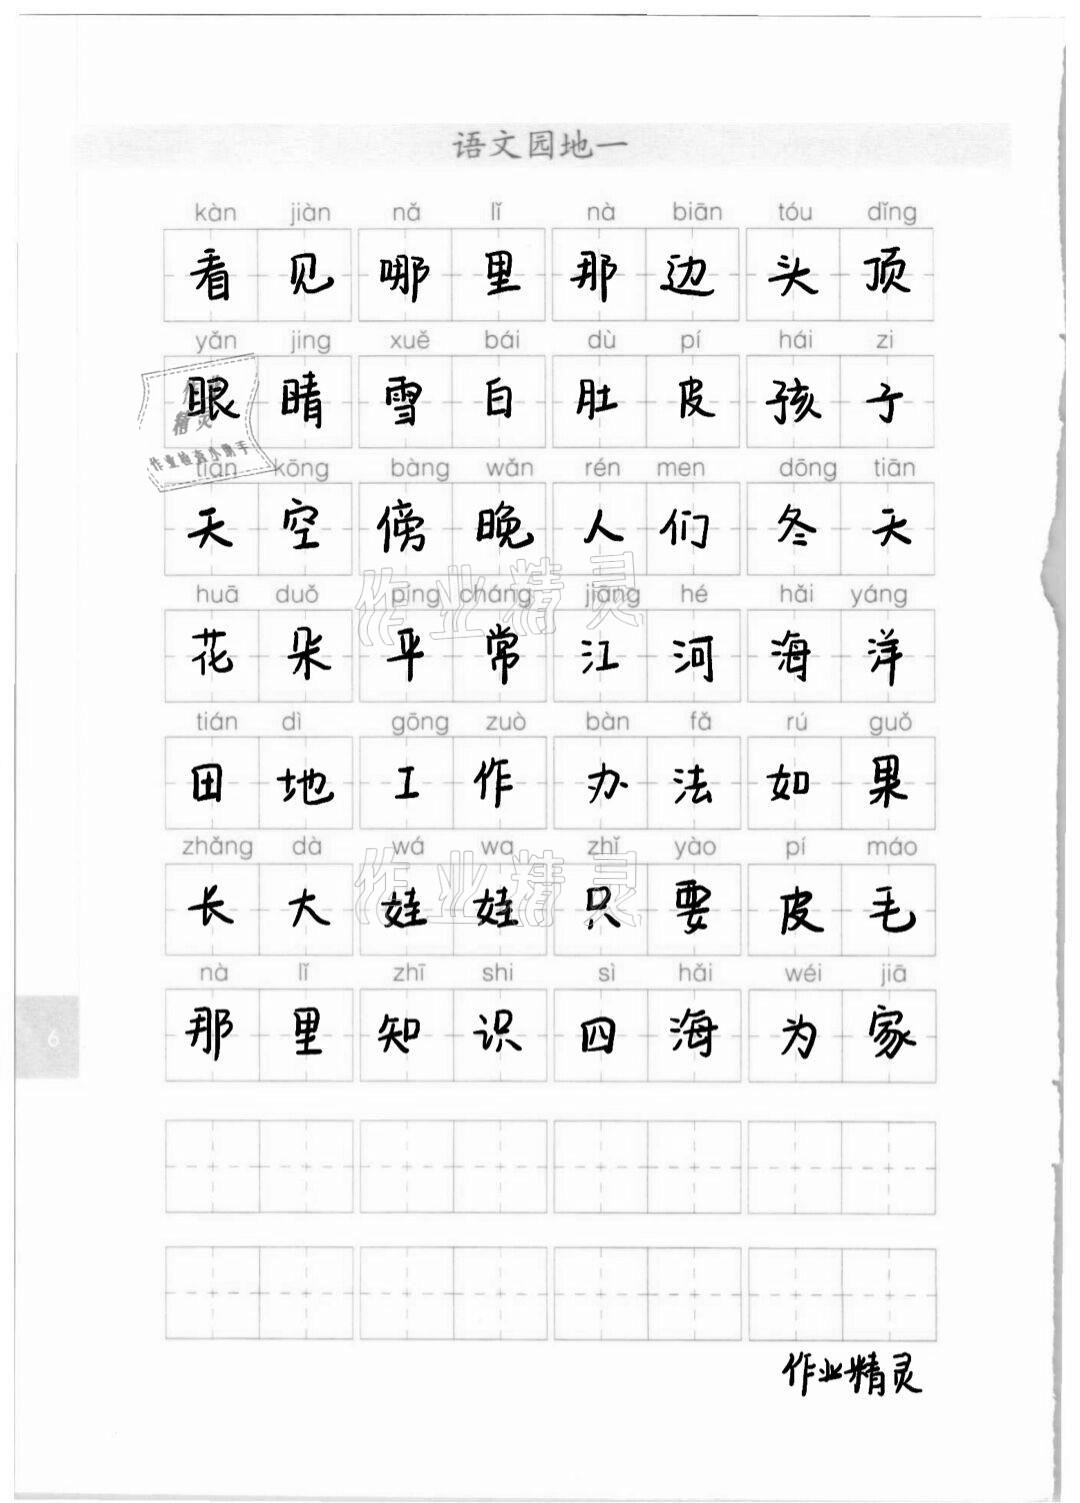 语文园地一
kàn jiàn nǎ lǐ nà biān tóu dǐng
看见哪里那边头顶
yǎn jing xuě bái dù pí hái zi
眼睛雪白肚皮孩子
作业
精灵
作业检查小助手
tiān kōng bàng wǎn rén men dōng tiān
天空傍晚人们冬天
huā duǒ píng cháng jiāng hé hǎi yáng
花朵平常江河海洋
作业精灵
tián dì gōng zuò bàn fǎ rú guǒ
田地工作办法如果
zhǎng dà wá wa zhǐ yào pí máo
长大娃娃只要皮毛
作业精灵
nà lǐ zhī shi sì hǎi wéi jiā
那里知识四海为家
6
作业精灵